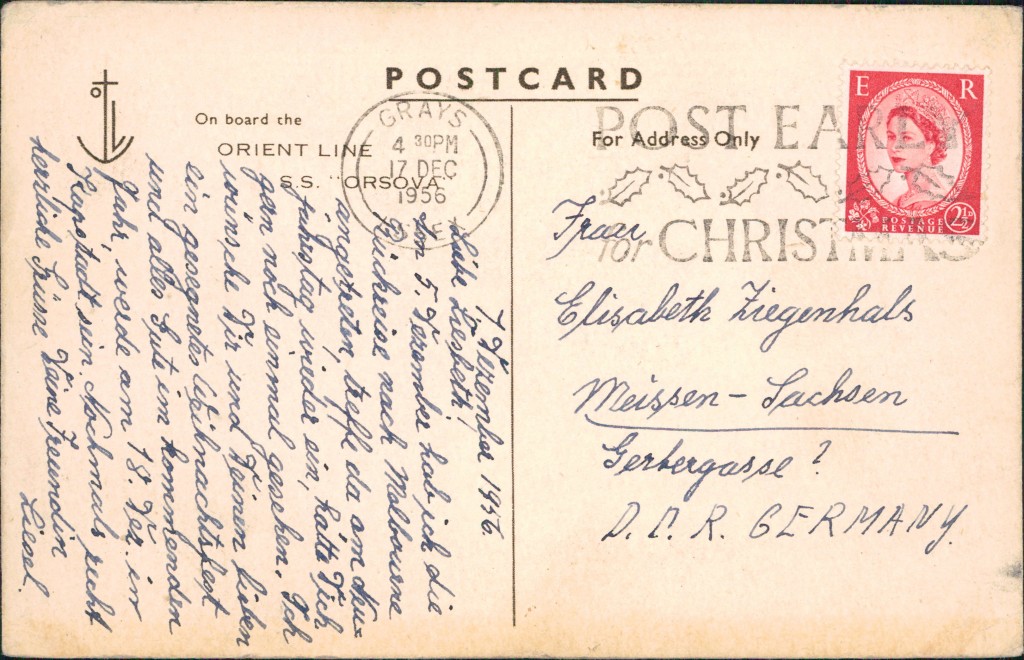 POSTCARD
On board the
ORIENT LINE
S.S. "ORSOVA"
For Address Only
GRAYS
4 30PM
17 DEC
1956
ESSEX
POST EARLY
for CHRISTMAS
E R
POSTAGE
REVENUE
2½D
7. Dezember 1956.
Liebe Liesbeth!
Am 5. Dezember hab ich die
Rückreise nach Melbourne
angetreten, treffe da am Neu=
jahrstag wieder ein, hätte Dich
gern noch einmal gesehen. Ich
wünsche Dir und Deinen lieben
ein gesegnetes Weihnachtsfest
und alles Gute im kommenden
Jahr, werde am 18. Dez. in
Kapstadt sein. Nochmals recht
herzliche Grüsse Deine Freundin
Liesel.
Frau
Elisabeth Ziegenhals
Meissen - Sachsen
Gerbergasse ?
D.D.R. GERMANY.